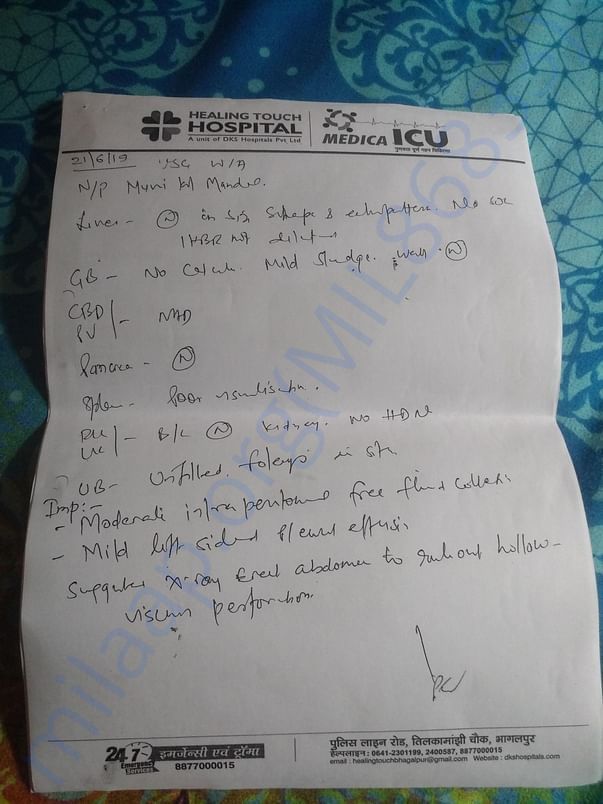 HEALING TOUCH
HOSPITAL
A unit of DKS Hospitals Pvt Ltd
MEDICA ICU
गुणवत्ता पूर्ण गहन चिकित्सा
21/6/19 USG W/A
N/P Muni Mandal.
Liver - N in size shape & echopattern. No SOL
IHBR not dilated
GB - No Calculi. Mild Sludge. wall - N
CBD
PV - NAD
Pancrea - N
Spleen - Poor visualisation.
RK
LK - B/L N kidney. No HDN
UB - Unfilled. foleys in situ
Imp:-
- Moderate intraperitoneal free fluid collection
- Mild left sided pleural effusion
Suggested X-ray Erect abdomen to rule out hollow-
viscus perforation.
24x7
Emergency
Services
इमर्जेन्सी एवं ट्रॉमा
8877000015
पुलिस लाइन रोड, तिलकामांझी चौक, भागलपुर
हेल्पलाइन : 0641-2301199, 2400587, 8877000015
email : healingtouchbhagalpur@gmail.com Website : dkshospitals.com
milaap.org(MIL868